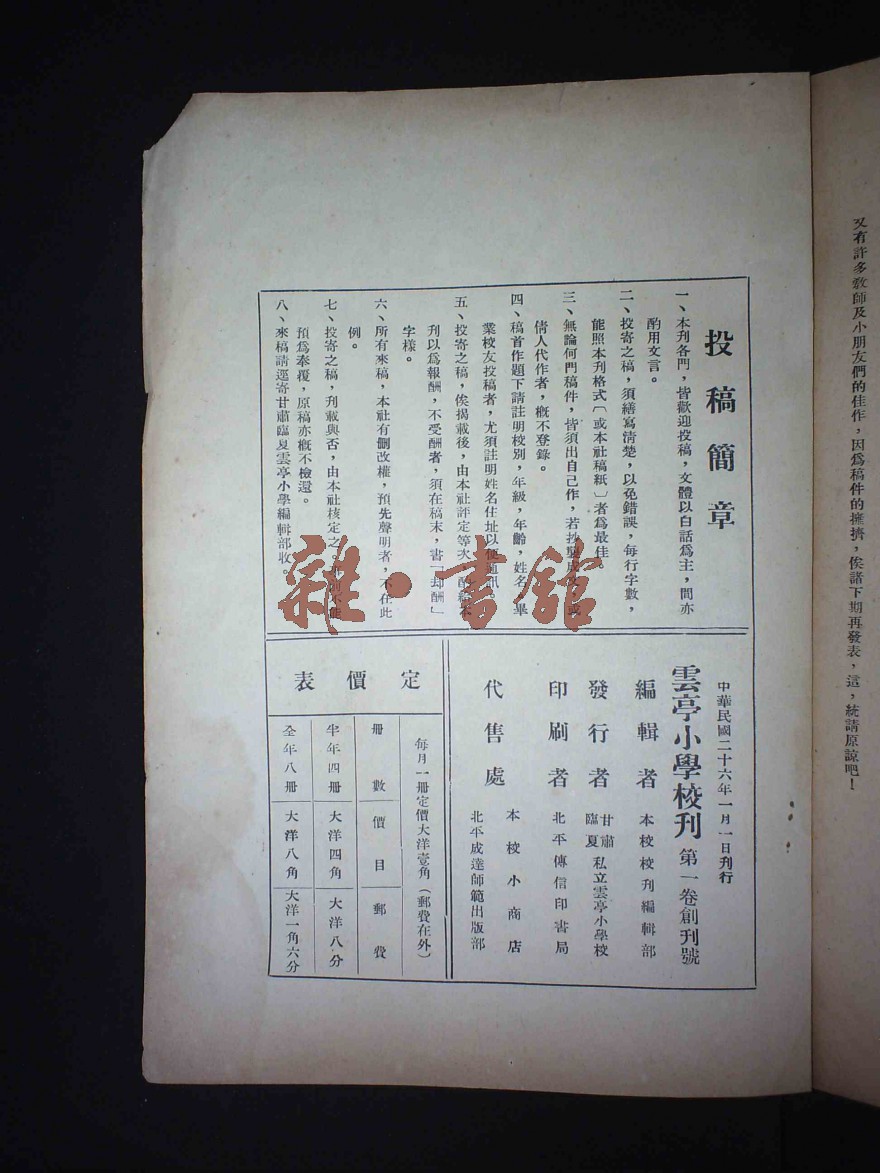 又有許多教師及小朋友們的佳作，因爲稿件的擁擠，俟諸下期再發表，這，統請原諒吧！
投稿簡章
一、本刊各門，皆歡迎投稿，文體以白話爲主，間亦
酌用文言。
二、投寄之稿，須繕寫清楚，以免錯誤，每行字數，
能照本刊格式（或本社稿紙）者爲最佳。
三、無論何門稿件，皆須出自己作，若抄襲成文，或
倩人代作者，概不登錄。
四、稿首作題下請註明校別，年級，年齡，姓名，畢
業校友投稿者，尤須註明姓名住址以便通訊。
五、投寄之稿，俟揭載後，由本社評定等次，酌贈本
刊以爲報酬，不受酬者，須在稿末，書「却酬」
字樣。
六、所有來稿，本社有刪改權，預先聲明者，不在此
例。
七、投寄之稿，刊載與否，由本社核定之。
預爲奉覆，原稿亦概不檢還。
八、來稿請逕寄甘肅臨夏雲亭小學編輯部收。
中華民國二十六年一月一日刊行
雲亭小學校刊 第一卷創刊號
編輯者 本校校刊編輯部
發行者 甘肅臨夏 私立雲亭小學校
印刷者 北平傳信印書局
代售處 本校小商店
北平成達師範出版部
定價表
每月一冊定價大洋壹角（郵費在外）
冊數 價目 郵費
半年四冊 大洋四角 大洋八分
全年八冊 大洋八角 大洋一角六分
雜·書館